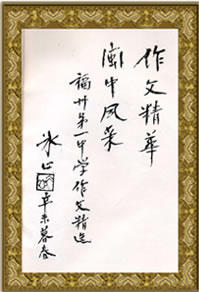 作文精華
闽中风采
福州第一中学作文精选
冰心
辛未暮春